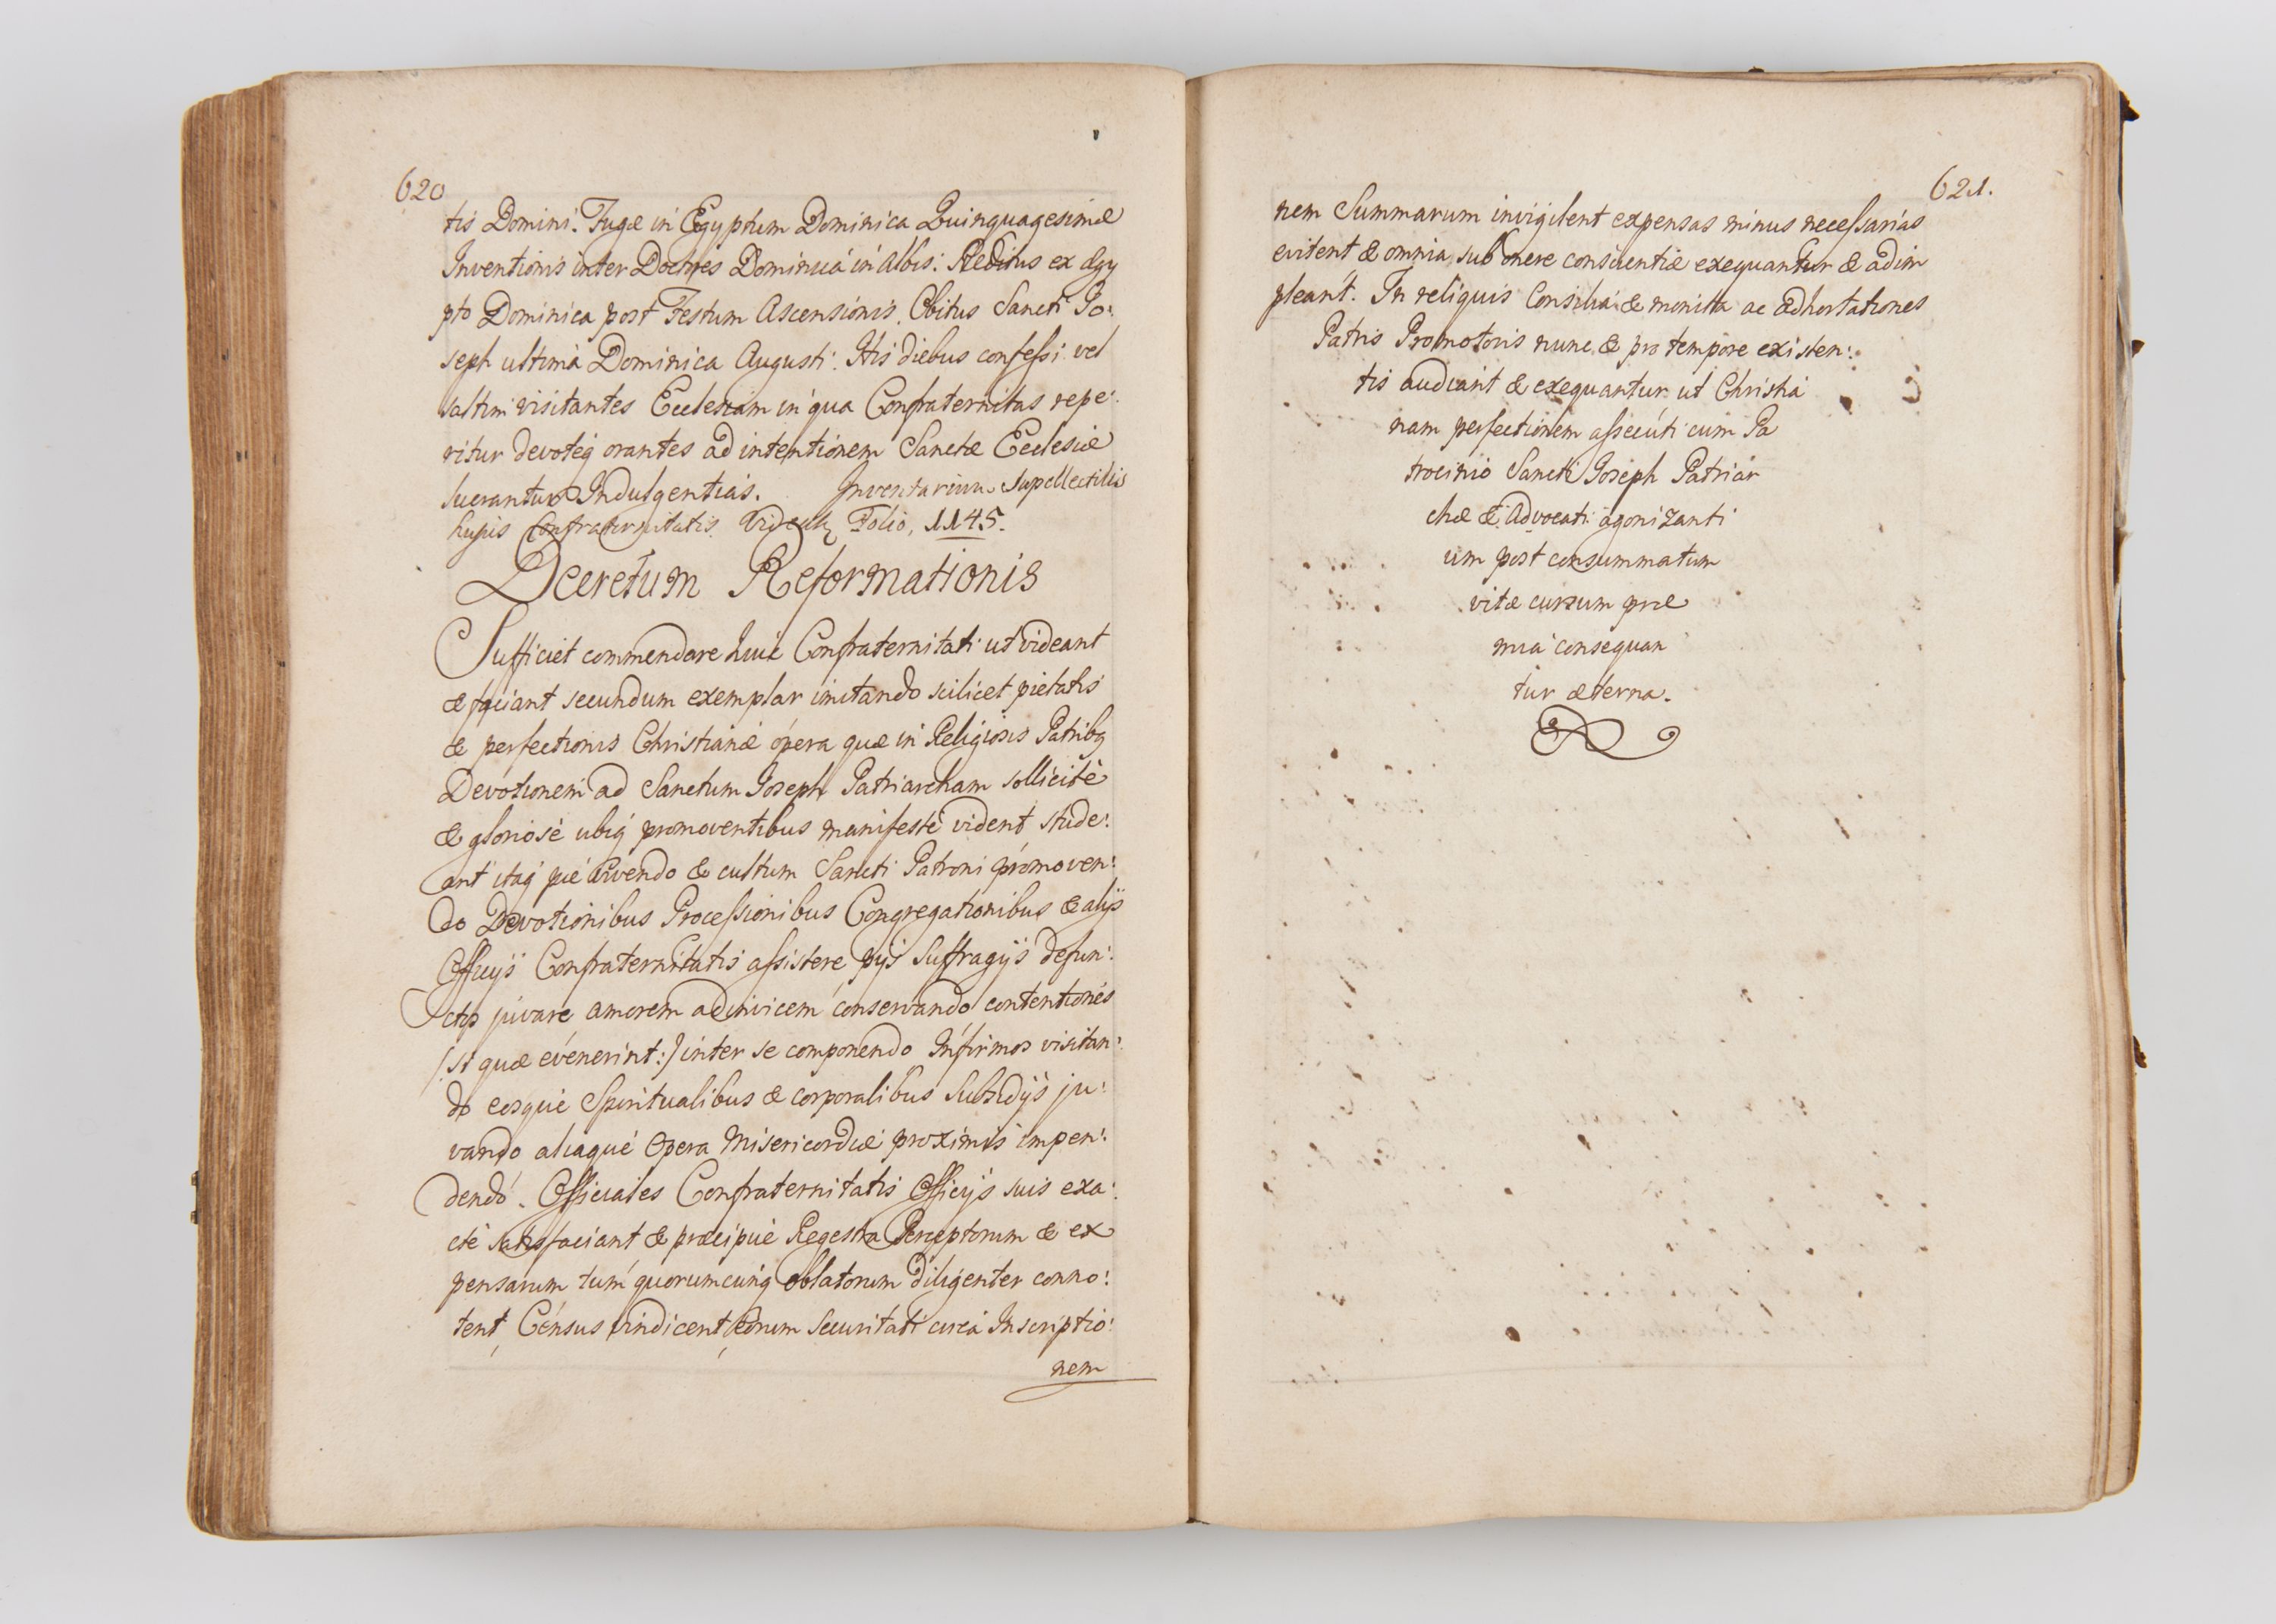 620
tis Domini. Fugæ in Egyptum Dominica Quinquagesimæ
Inventionis inter Doctores Dominica in Albis: Reditus ex Ægy
pto Dominica post Festum Ascensionis. Obitus Sancti Jo:
seph ultima Dominica Augusti. His diebus confessi vel
saltim visitantes Ecclesiam in qua Confraternitas repe:
ritur devoteq orantes ad intentionem Sanctæ Ecclesiæ
lucrantur Indulgentias. Inventarium Supellectilis
hujus Confraternitatis Videatur Folio, 1145.
Decretum Reformationis
Sufficiet commendare huic Confraternitati ut videant
& faciant secundum exemplar imitando scilicet pietatis
& perfectionis Christianæ opera quæ in Religiosis Patribq
Devotionem ad Sanctum Joseph Patriarcham sollicitè
& gloriosè ubiq promoventibus manifestè vident stude:
ant itaq piè vivendo & cultum Sancti Patroni promoven:
do Devotionibus Processionibus Congregationibus & alijs
Officijs Confraternitatis assistere pijs Suffragijs defun:
ctos juvare amorem adinvicem conservando contentiones
/:si quæ evenerint:/ inter se componendo Infirmos visitan:
do eosque Spiritualibus & corporalibus Subsidijs ju:
vando aliaque Opera Misericordiæ proximis impen:
dendo. Officiales Confraternitatis Officijs suis exa:
ctè satisfaciant & præcipuè Regestra Perceptorum & ex
pensarum tum quorumcunq oblatorum diligenter conno:
tent, Census vindicent, eorum Securitati circa Inscriptio:
nem
621.
nem Summarum invigilent expensas minus necessarias
evitent & omnia sub onere conscientiæ exequantur & adim
pleant. In reliquis Consilia & monita ac adhortationes
Patris Promotoris nunc & pro tempore existen:
tis audiant & exequantur ut Christia
nam perfectionem assecuti cum Pa
trocinio Sancti Joseph Patriar
chæ & Advocati agonizanti
um post consummatum
vitæ cursum præ
mia consequan
tur æterna.